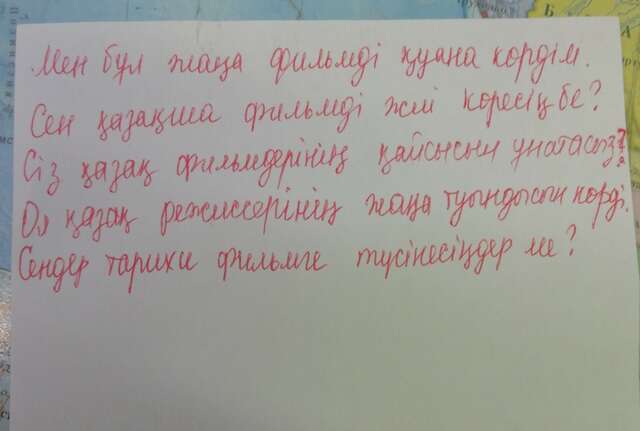 Мен бул жаңа фильмді қуана кордім.
Сен қазақша фильмді жиі коресің бе?
Сіз қазақ фильмдерінің қайсысын унатасыз?
Ол қазақ режиссерінің жаңа туындысын корді.
Сендер тарихи фильмге түсінесіңдер ме?